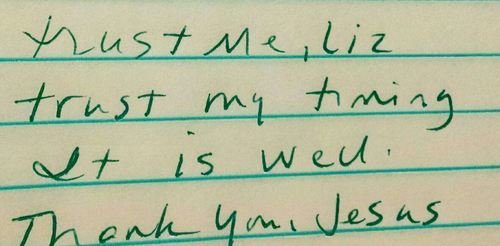 trust Me, Liz
trust my timing
It is well.
Thank You, Jesus